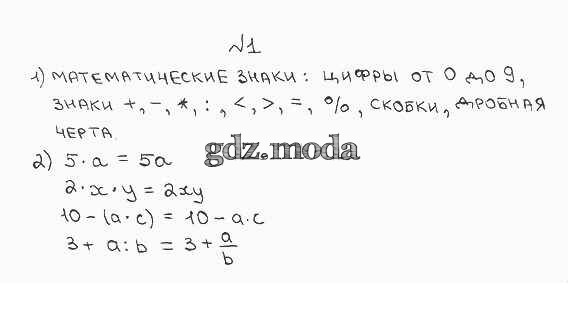 №1
1) МАТЕМАТИЧЕСКИЕ ЗНАКИ: ЦИФРЫ ОТ 0 ДО 9,
ЗНАКИ +, -, *, :, <, >, =, %, СКОБКИ, ДРОБНАЯ
ЧЕРТА.
2) 5·a = 5a
gdz.moda
2·x·y = 2xy
10-(a·c) = 10-a·c
3+ a:b = 3+ a/b